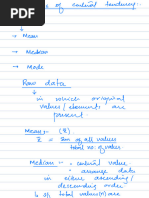 of central tendency :-
↓
→ Mean
→ Median
→ Mode
Raw data
↓
in which original
values / elements are
present
Mean :- (x̄)
x̄ = Sum of all values
total no. of value
Median - central value
→ arrange data
in either ascending /
descending order
total values (n) are